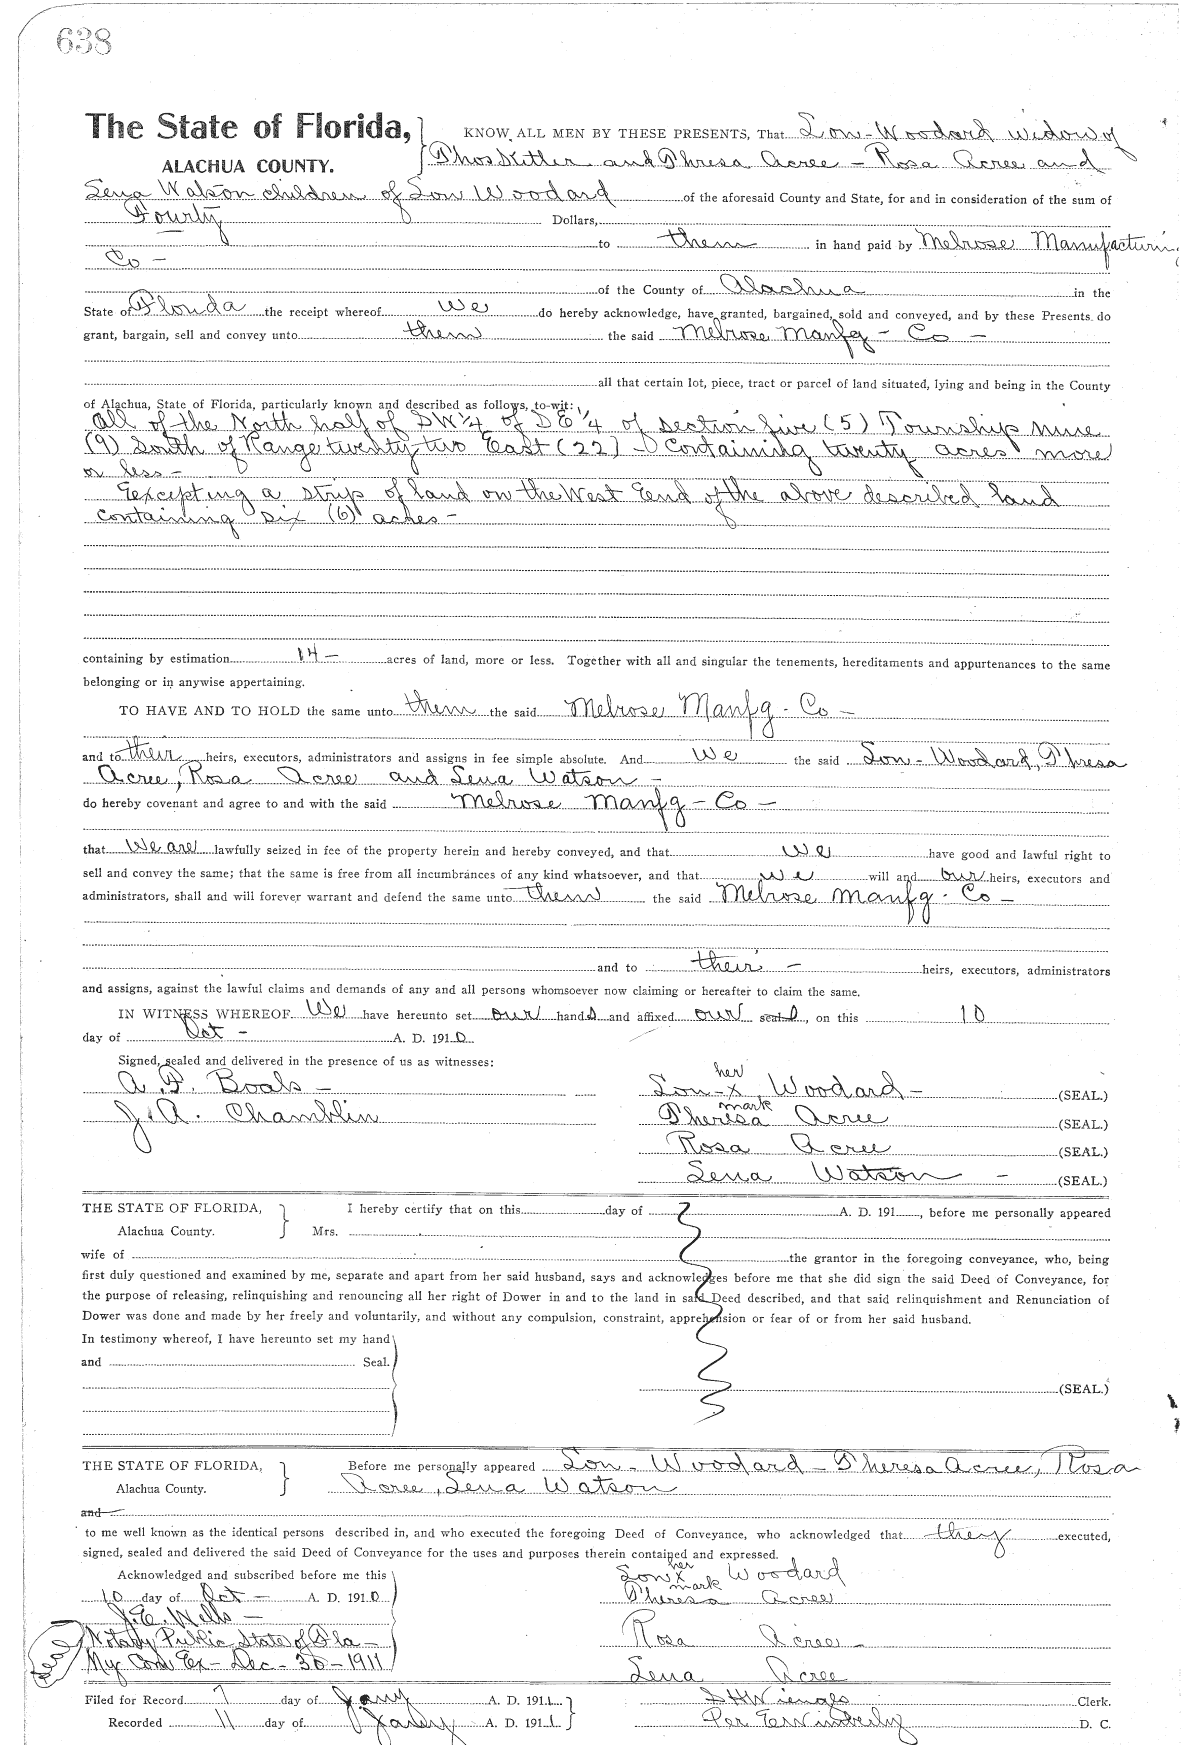 638
The State of Florida, KNOW ALL MEN BY THESE PRESENTS, That Lou-Woodard widow of
ALACHUA COUNTY. Thos and Thresa Acree - Rosa Acree and
Lena Watson children of Lou Woodard of the aforesaid County and State, for and in consideration of the sum of
Fourty Dollars,
to them in hand paid by Melrose Manufacturing
Co -
of the County of Alachua in the
State of Florida the receipt whereof we do hereby acknowledge, have granted, bargained, sold and conveyed, and by these Presents do
grant, bargain, sell and convey unto them the said Melrose Manfg - Co -
all that certain lot, piece, tract or parcel of land situated, lying and being in the County
of Alachua, State of Florida, particularly known and described as follows, to-wit:
All of the North half of SW 1/4 of SE 1/4 of section five (5) Township nine
(9) South of Range twenty two East (22) - Containing twenty acres more
or less -
Eexcepting a strip of land on the West Eend of the above described land
containing six (6) aches -
containing by estimation 14 - acres of land, more or less. Together with all and singular the tenements, hereditaments and appurtenances to the same
belonging or in anywise appertaining.
TO HAVE AND TO HOLD the same unto them the said Melrose Manfg - Co -
and to their heirs, executors, administrators and assigns in fee simple absolute. And we the said Lou - Woodard, Thresa
Acree, Rosa Acree and Lena Watson -
do hereby covenant and agree to and with the said Melrose Manfg - Co -
that we are lawfully seized in fee of the property herein and hereby conveyed, and that we have good and lawful right to
sell and convey the same; that the same is free from all incumbrances of any kind whatsoever, and that we will and our heirs, executors and
administrators, shall and will forever warrant and defend the same unto them the said Melrose Manfg - Co -
and to their - heirs, executors, administrators
and assigns, against the lawful claims and demands of any and all persons whomsoever now claiming or hereafter to claim the same.
IN WITNESS WHEREOF We have hereunto set our hands and affixed our seals, on this 10
day of Oct - A. D. 1910
Signed, sealed and delivered in the presence of us as witnesses:
A. P. Boals - Lou - her x mark Woodard - (SEAL.)
J. A. Chamblin Theresa Acree (SEAL.)
Rosa Acree (SEAL.)
Lena Watson - (SEAL.)
THE STATE OF FLORIDA, I hereby certify that on this day of A. D. 191 , before me personally appeared
Alachua County. Mrs.
wife of the grantor in the foregoing conveyance, who, being
first duly questioned and examined by me, separate and apart from her said husband, says and acknowledges before me that she did sign the said Deed of Conveyance, for
the purpose of releasing, relinquishing and renouncing all her right of Dower in and to the land in said Deed described, and that said relinquishment and Renunciation of
Dower was done and made by her freely and voluntarily, and without any compulsion, constraint, apprehension or fear of or from her said husband.
In testimony whereof, I have hereunto set my hand
and Seal.
(SEAL.)
THE STATE OF FLORIDA, Before me personally appeared Lou - Woodard - Theresa Acree, Rosa
Alachua County. Acree, Lena Watson
and
to me well known as the identical persons described in, and who executed the foregoing Deed of Conveyance, who acknowledged that they executed,
signed, sealed and delivered the said Deed of Conveyance for the uses and purposes therein contained and expressed.
Acknowledged and subscribed before me this Lou her x mark Woodard
10 day of Oct - A. D. 1910 Theresa Acree
J. E. Wells -
Notary Public State of Fla - Rosa Acree -
My Com Ex - Dec - 30 - 1911
Seal Lena Acree
Filed for Record 7 day of Jany A. D. 1911 Clerk.
Recorded 11 day of Jany A. D. 1911 Per E Wimberly D. C.